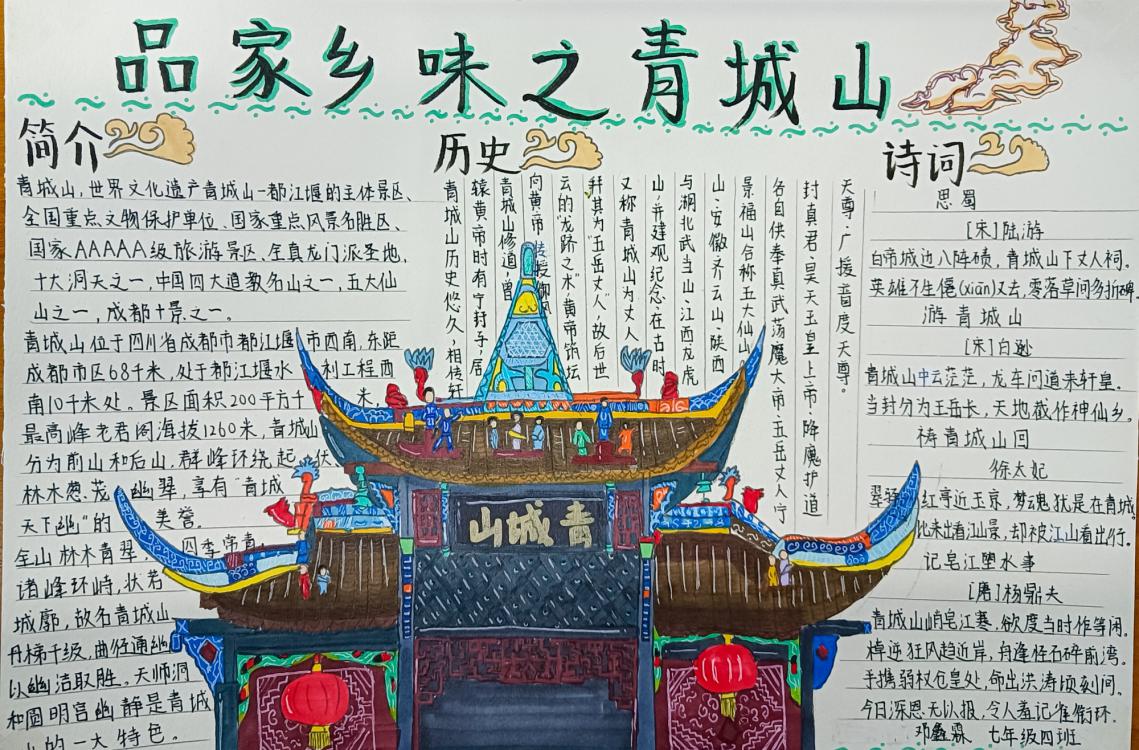 品家乡味之青城山
简介
青城山,世界文化遗产青城山-都江堰的主体景区、
全国重点文物保护单位、国家重点风景名胜区、
国家AAAAA级旅游景区、全真龙门派圣地,
十大洞天之一,中国四大道教名山之一,五大仙
山之一,成都十景之一。
青城山位于四川省成都市都江堰市西南,东距
成都市区68千米,处于都江堰水利工程西
南10千米处。景区面积200平方千米,
最高峰老君阁海拔1260米,青城山
分为前山和后山,群峰环绕起伏
林木葱茏幽翠,享有"青城
天下幽"的美誉。
全山林木青翠,四季常青,
诸峰环峙,状若
城廓,故名青城山
丹梯千级,曲径通幽
以幽洁取胜。天师洞
和圆明宫幽静是青城
山的一大特色。
历史
青城山历史悠久,相传轩
辕黄帝时有宁封子,居
青城山修道,曾
向黄帝传授御风
云的"龙跻之术",黄帝筑坛
拜其为"五岳丈人",故后世
又称青城山为丈人
山,并建观纪念。在古时
与湖北武当山、江西龙虎
山、安徽齐云山、陕西
景福山合称五大仙山
各自供奉真武荡魔大帝、五岳丈人宁
封真君、昊天玉皇上帝、降魔护道
天尊、广援普度天尊。
诗词
思蜀
[宋]陆游
白帝城边八阵碛,青城山下丈人祠。
英雄不生僊(xiān)又去,零落草间多折碑。
游青城山
[宋]白逊
青城山中云茫茫,龙车问道来轩皇。
当封分为王岳长,天地截作神仙乡。
祷青城山回
徐太妃
翠驿红亭近玉京,梦魂犹是在青城
比来出看江山景,却被江山看出行。
记皂江堕水事
[唐]杨鼎夫
青城山峭皂江寒,欲度当时作等闲。
棹逆狂风趋近岸,舟逢怪石碎前湾。
手携弱杖仓皇处,命出洪涛顷刻间。
今日深恩无以报,令人羞记雀衔环。
七年级四班
山城青